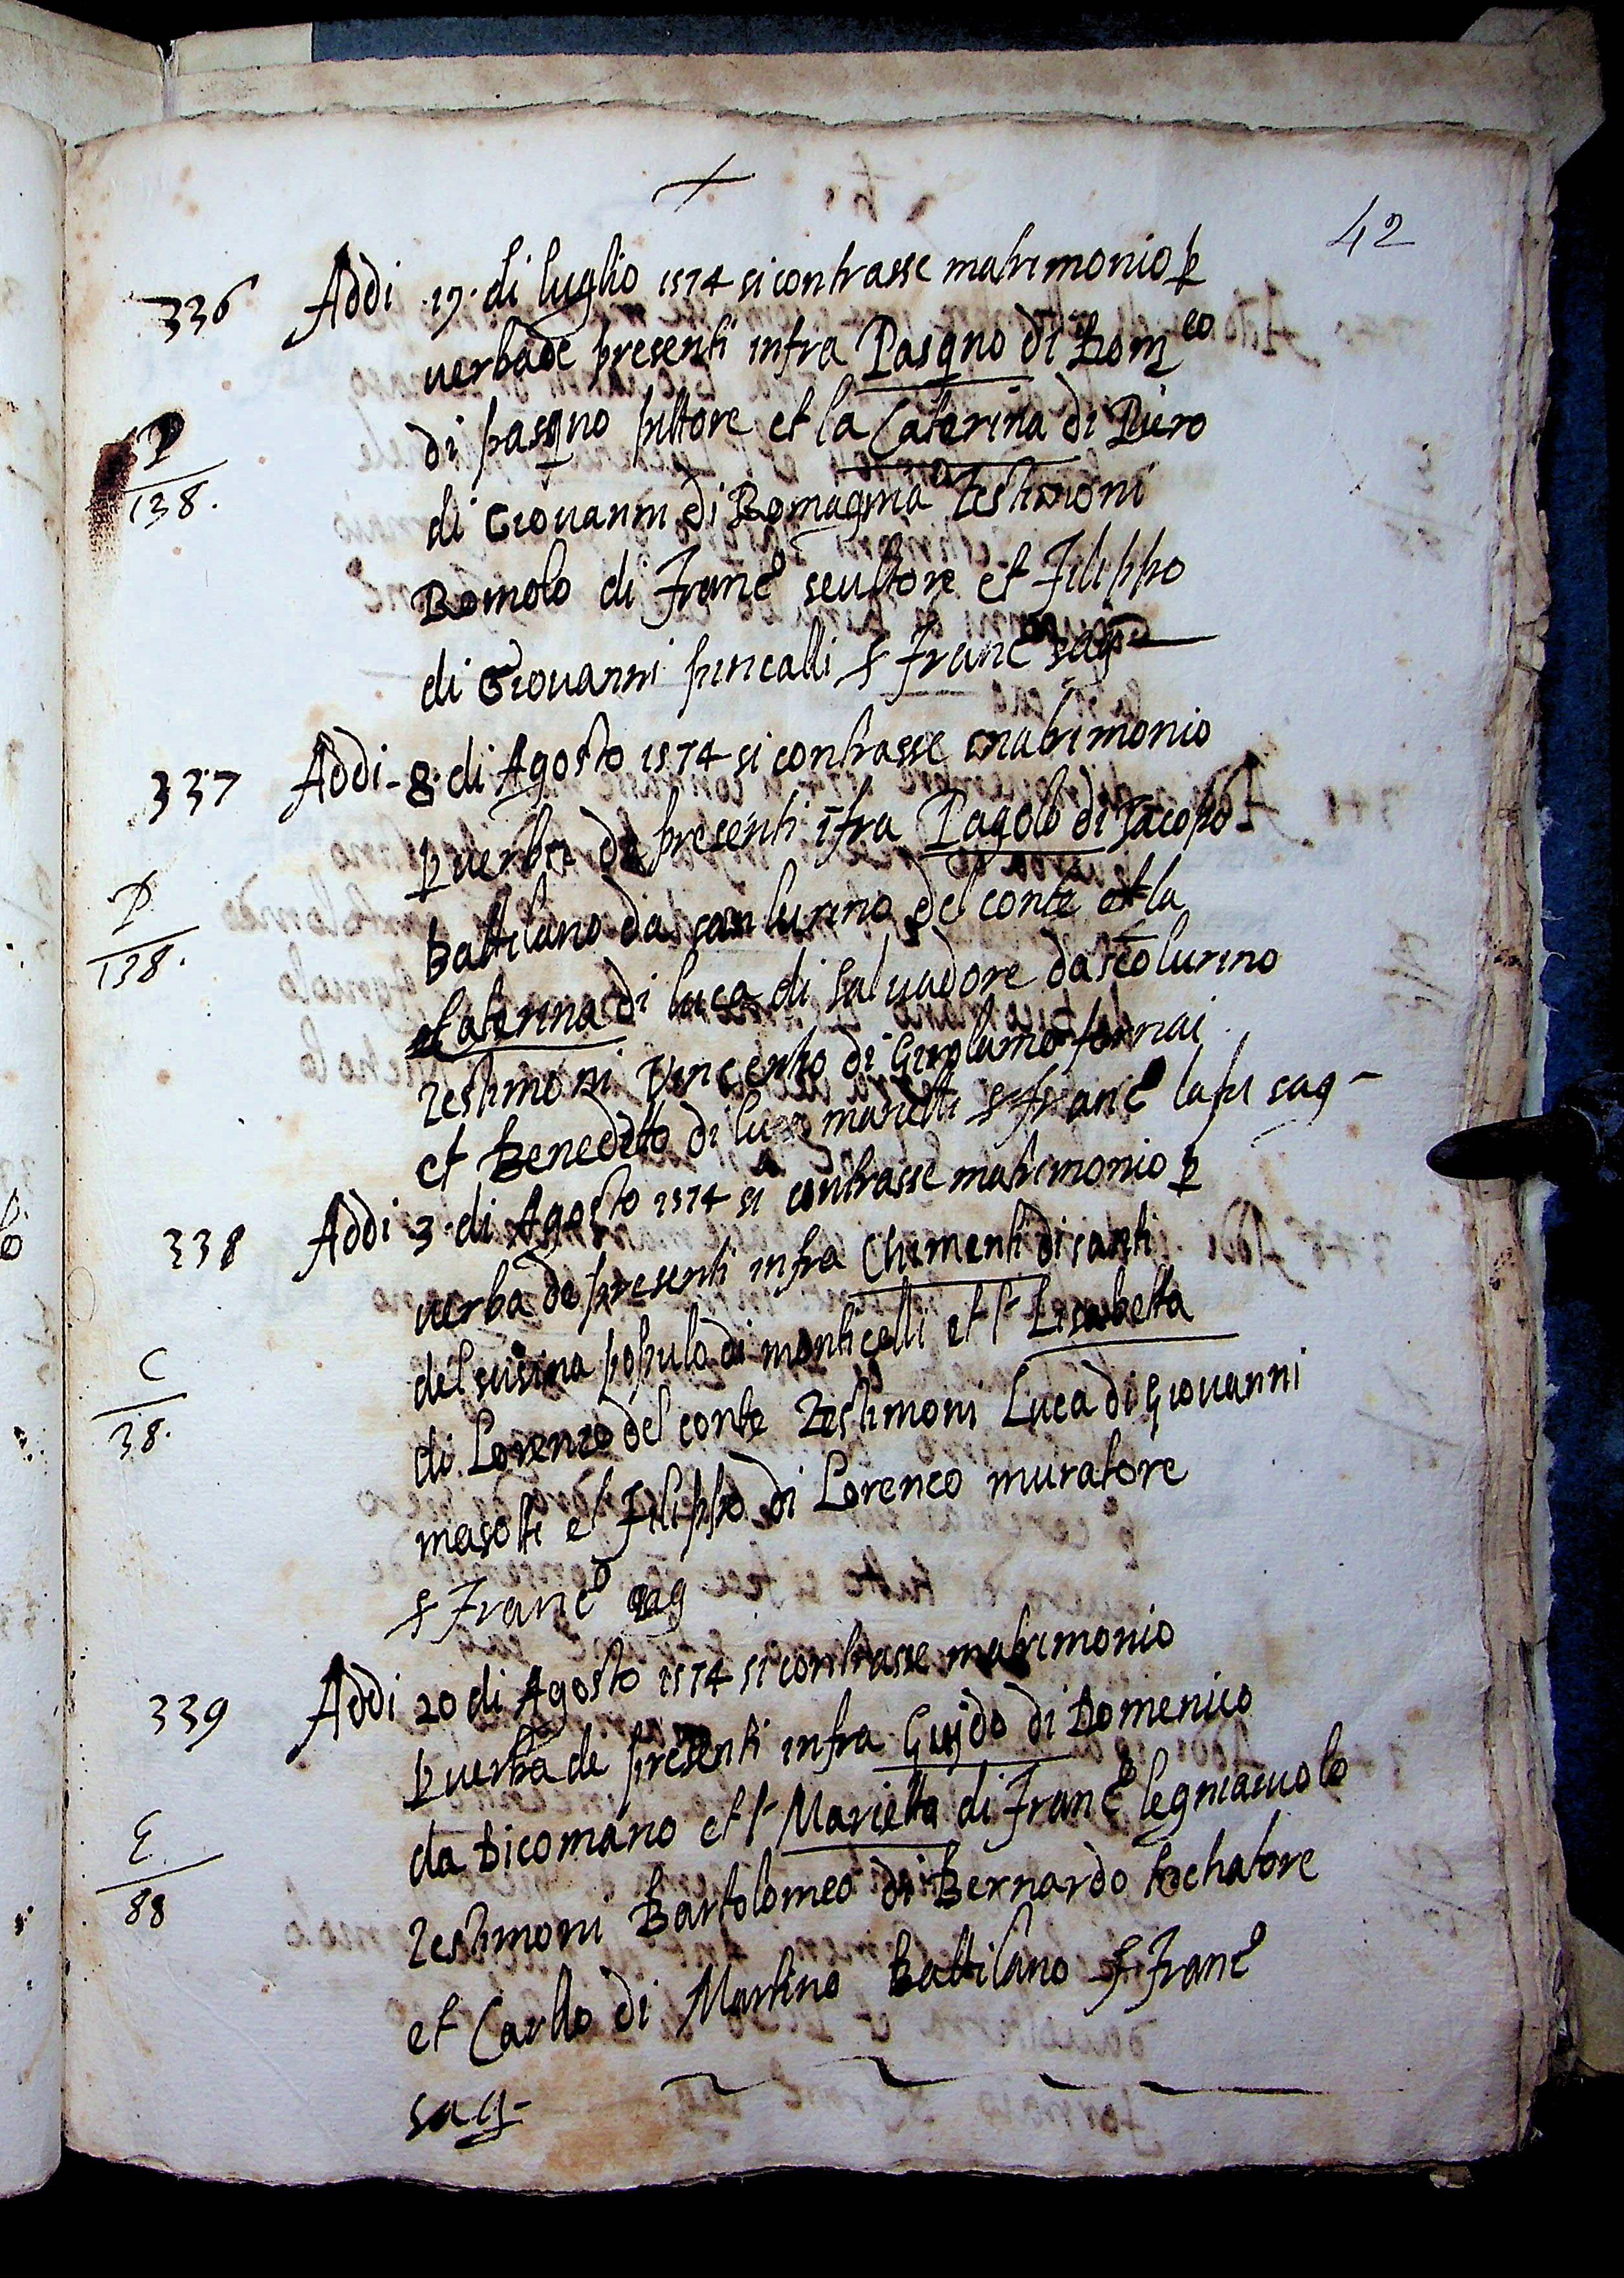 42
336 Addi 19. di luglio 1574 si contrasse matrimonio p
verba de presenti infra Pasqno di Dom.co
P
138.
di pasqno pittore et la Caterina di Piero
di Giovanni di Romagnia Testimoni
Romolo di Franc.o scultore et Filippo
di Giovanni f Franc.o sag
337 Addi - 8. di Agosto 1574 si contrasse matrimonio
p verba de presenti ifra Pagolo di Jacopo
P
138.
Battilano da san lurino del conte et la
Caterina di luca di salvadore da sco lurino
Testimoni Vincentio di Girolamo fornai
et Benedetto di luca mariotti f Franc.o lapi sag
338 Addi 3. di Agosto 1574 si contrasse matrimonio p
verba de presenti infra Chimenti di santi
C
38.
del susina populo di monticelli et l Lisabetta
di Lorenzo del conte Testimoni Luca di Giovanni
masotti et Filippo di Lorenzo muratore
f Franc.o sag
339 Addi 20 di Agosto 1574 si contrasse matrimonio
p verba de presenti infra Guido di Domenico
da Dicomano et l Marietta di Franc.o legniaiuolo
E
88
Testimoni Bartolomeo di Bernardo
et Carlo di Martino Battilano f Franc.o
sag